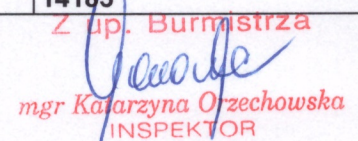 14183
Z up. Burmistrza
mgr Katarzyna Orzechowska
INSPEKTOR